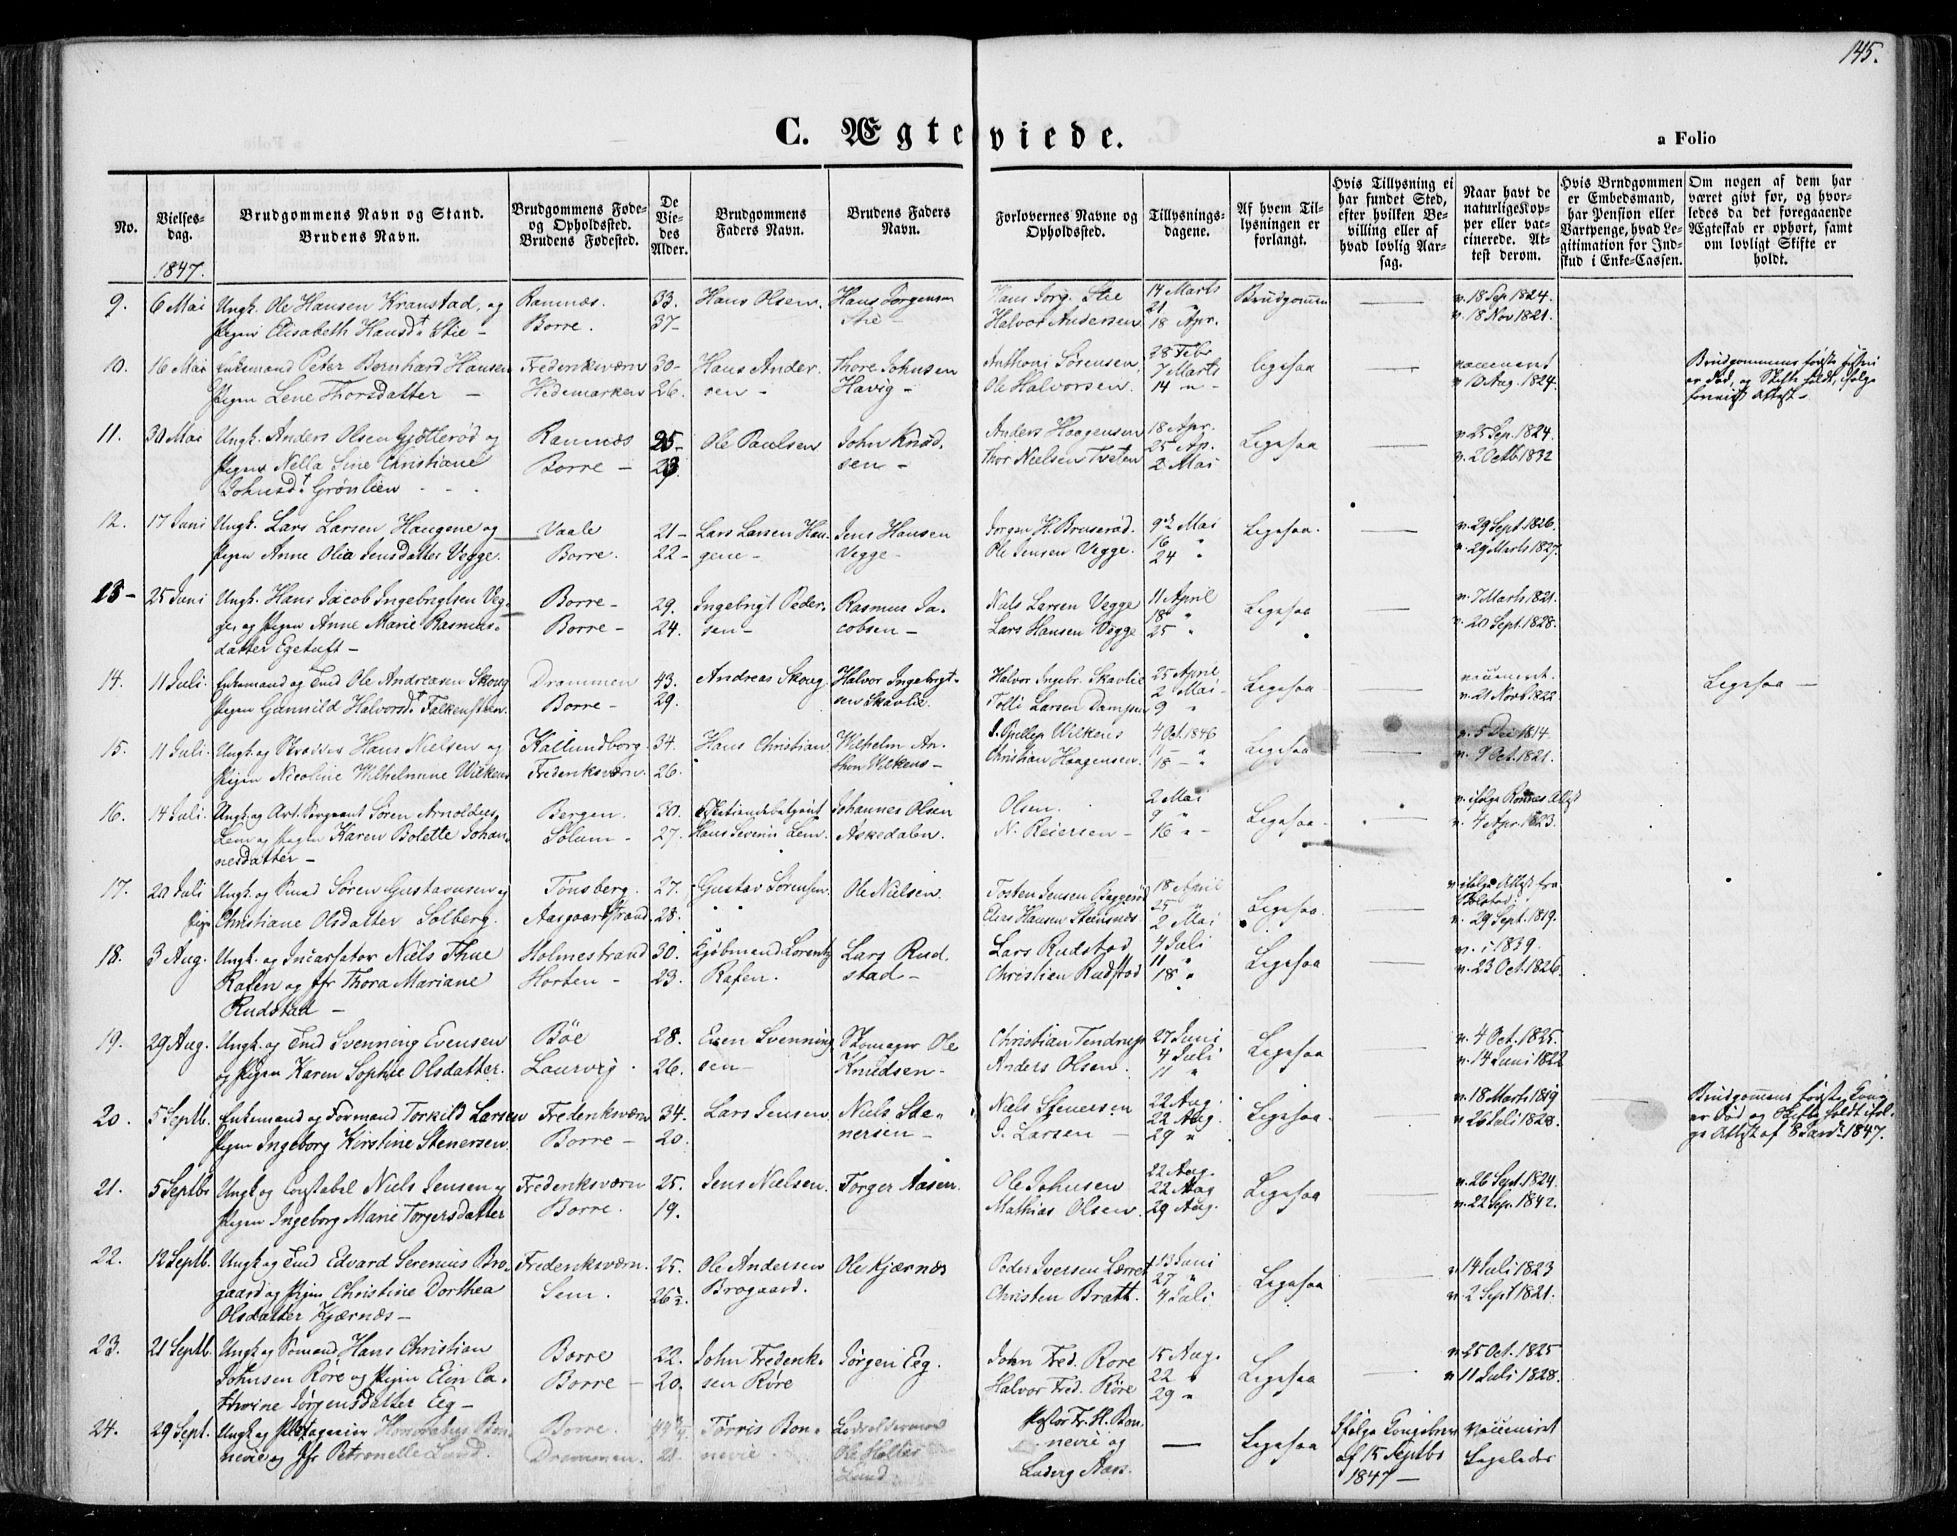 145.
C. Ægteviede.
a Folio
No.
Vielsesdag.
Brudgommens Navn og Stand.
Brudens Navn.
Brudgommens Føde- og Opholdssted.
Brudens Fødested.
De Viedes Alder.
Brudgommens Faders Navn.
Brudens Faders Navn.
Forlovernes Navne og Opholdssted.
Tillysningsdagene.
Af hvem Tillysningen er forlangt.
Hvis Tillysning ei har fundet Sted, efter hvilken Bevilling eller af hvad lovlig Aarsag.
Naar havt de naturlige Kopper eller vaccinerede. Attest derom.
Hvis Brudgommen er Embedsmand, har Pension eller Vartpenge, hvad Legitimation for Indskud i Enke-Cassen.
Om nogen af dem har været givt før, og hvorledes da det foregaaende Ægteskab er ophørt, samt om lovligt Skifte er holdt.
1847.
9. 6 Mai Ungk. Ole Hansen Kranstad, og Ramnæs. 33. Hans Olsen. Hans Jørgensen Hans Jørg. Stie 14 Marts Brudgommen — v. 18 Sep 1824.
Pigen Elisabeth Hansdr Stie – Borre. 37– Stie – Halvor Andersen 21 18 Apr. v. 18 Nov 1821.
10. 16 Mai Enkemand Peter Bernhard Hansen Frederiksværn 30– Hans Ander- Thore Johnsen Anthoni Sørensen 28 Febr ligesaa — vaccineret Brudgommens første
Pigen Lene Thorsdatter – Hedemarken 26. sen – Havig – Ole Halvorsen. 7 Marts 14 " – v. 10 Aug. 1824. er død, og Skifte holdt, ifølge
Attest –
11. 30 Mai Ungk. Anders Olsen og Ramnæs 25– Ole Paulsen John Knud- Anders Haagensen 18 Apr. Ligesaa — v. 25 Sep. 1824.
Pigen Nella Sine Christiane Borre – 23. sen – Thor Nielsen Tveten 25 Ap. 2 Mai v. 2 Octb 1832
Johnsdr Grønlien
12. 17 Juni Ungk. Lars Larsen Haugene og Vaale 21– Lars Larsen Hau- Jens Hansen Jørgen H. Bruserød. 9de Mai Ligesaa. — v. 29 Sept. 1826.
Pigen Anne Olia Jensdatter Vegge. Borre. 22– gene – Vegge. Ole Jensen Vegge. 16 " 24 " v. 29 Marts 1827.
13– 25 Juni Ungk. Hans Jacob Ingebrigtsen Veg- Borre – 29. Ingebrigt Peder- Rasmus Ja- Niels Larsen Vegge 11 April Ligesaa — v. 7 Marts 1821.
ge, og Pigen Anne Marie Rasmus- Borre – 24. sen – cobsen – Lars Hansen Vegge 18 " 25 " v. 20 Sept. 1828.
datter Egetuft –
14. 11 Juli. Enkemand og Tmd Ole Andreasen Skoug Drammen 43. Andreas Skoug. Halvor Ingebrigt- Halvor Ingebr. Skavlie 25 April Ligesaa — vaccineret. Ligesaa –
Pigen Gunnild Halvorsdr Falkensteen. Borre – 29. sen Skavlie. Larsen 2 Mai 9 " v. 21 Novb 1822
15. 11 Juli. Ungk. og Skrædder Hans Nielsen og Kallundborg. 34. Hans Christian Wilhelm An- Wilkens 4 Oct. 1846 Ligesaa — v. 5 Dec 1814.
Pigen Nicoline Wilhelmine Wilkens Frederiksværn. 26. thon Wilkens – Christian Haagensen. 11 – " 18 – " v. 9 Oct. 1821.
16. 14 Juli. Ungk og Art. Sergeant Søren Arnoldus Bergen. 30. Johannes Olsen Olsen. 2 Mai Ligesaa. — v. ifølge Attest
Lem og Pigen Karen Bolette Johan- Solum – 27. Hans Severin Lem. Askedalen. N. Reiersen – 9 " 16 " – v. 4 Apr. 1823.
nesdatter –
17. 20 Juli Ungk. og Smed Søren Gustavsen og Tønsberg. 27. Gustav Sørensen. Ole Nielsen. Tosten Jensen 18 April Ligesaa. — v. ifølge Attest fra
Pigen Christiane Olsdatter Solberg. Aasgaardstrand. 28. Hansen Steensnæs 25 " 2 Mai v. 29 Sept. 1819.
18. 3 Aug. Ungk. og Incassator Niels Thue Holmestrand 30. Kjøbmand Lorentz Lars Rud- Lars Rudstad 4 Juli Ligesaa — v. i 1839.
Rafen og Jfr Thora Mariane Horten – 23. Rafen. stad – Christian Rudstad 11 " 18 " v. 23 Oct. 1826.
Rudstad –
19. 29 Aug. Ungk. og Tmd Svenning Evensen Bøe 28. Even Svenning- Skomager Ole Christian Tendrup 27 Juni Ligesaa — v. 4 Oct. 1825.
og Pigen Karen Sophie Olsdatter. Laurvig. 26. sen – Knudsen – Anders Olsen. 4 Juli 11 " v. 14 Juni 1822
20. 5 Septb. Enkemand og Formand Torkild Larsen Frederiksværn 34. Lars Jensen Niels Ste- Niels Stenersen 22 Aug. Ligesaa. — v. 18 Marts 1819 Brudgommens første Kone
Pigen Ingeborg Kirstine Stenersen. Borre – 20. nersen – Larsen – 22 Aug. 29 " v. 26 Juli 1828. er død og Skifte holdt ifølge Attest af 8 1847.
21. 5 Septbr Ungk og Constabel Niels Jensen og Frederiksværn 25. Jens Nielsen. Torger Aasen. Ole Johnsen 22 Aug. Ligesaa — v. 26 Sept. 1824.
Pigen Ingeborg Marie Torgersdatter Borre. 19. Mathias Olsen. 22 Aug 29 Aug. v. 22 Sep. 1842.
22. 12 Septb. Ungk og Tmd Edvard Serenius Bro- Frederiksværn. 25. Ole Andersen Ole Kjærnæs Peder Iversen 13 Juni Ligesaa — v. 14 Juli 1823
gaard og Pigen Christine Dorthea Sem. 26½ Brogaard. Christen Bratt. 27 " 4 Juli v. 2 Sept 1821.
Olsdatter Kjærnæs –
23. 21 Septb. Ungk og Sømand Hans Christian Borre 22. John Frederik- Jørgen Eeg. John Fred. Røre 15 Aug. Ligesaa — v. 25 Oct. 1825
Johnsen Røre og Pigen Elin Ca- Borre – 20. sen Røre Halvor Fred. Røre 22 " 29 " v. 11 Juli 1828.
thrine Jørgensdatter Eeg –
24. 29 Sept. Ungk. og Honoratus Bon- Borre. Tørris Bon- Pastor Fr. H. Bon- — Ligesaa Ifølge Kongebrev vaccineret
nevie og Jfr Petronelle Lund. Drammen. nevie Ole Holter Lund nevie og Ludvig Aars. af 15 Septbr 1847 – Ligeledes